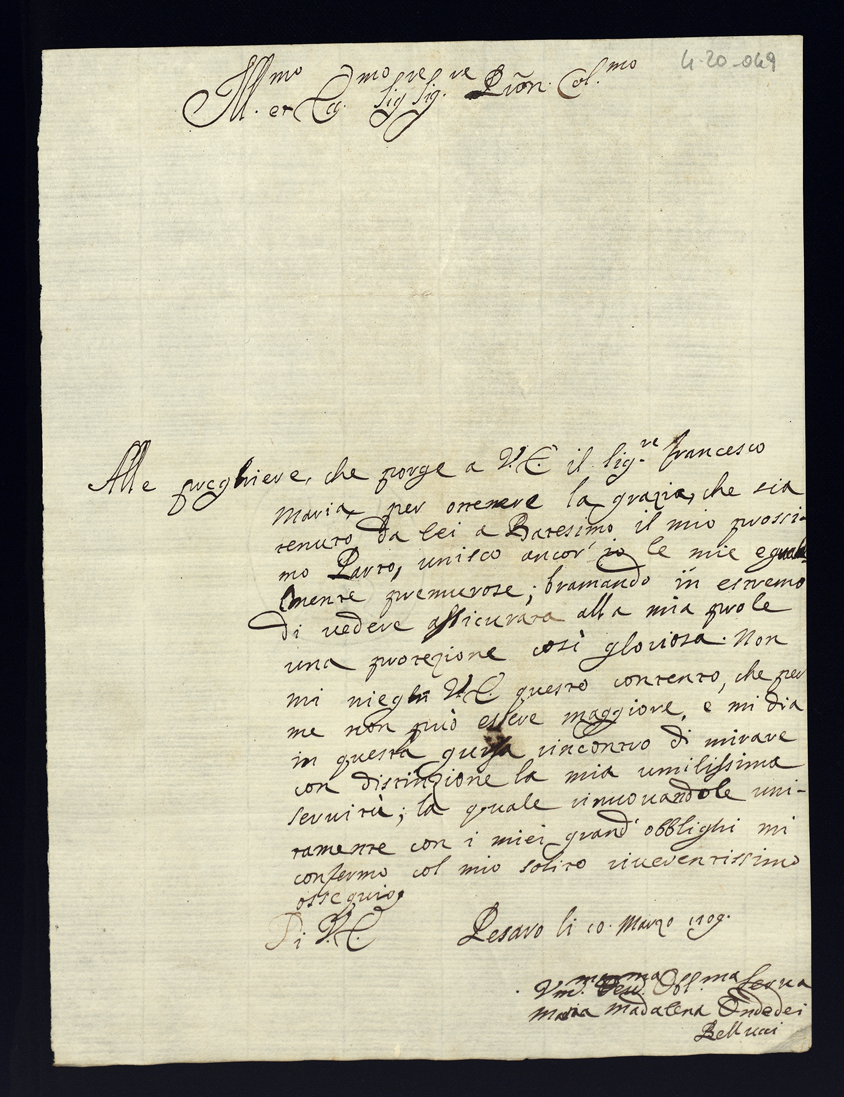 4-20-049
Ill.mo et Ecc.mo Sig.re Sig.re P̃ron. Col.mo
Alle preghiere, che porge a V.E. il Sig.re Francesco
Maria, per ottenere la grazia, che sia
tenuto da lei a Batesimo il mio prossi-
mo Parto, unisco ancor' io le mie egual
mente premurose; bramando in estremo
di vedere assicurata alla mia prole
una protezione così gloriosa. Non
mi nieghi V.E. questo contento, che per
me non può essere maggiore, e mi dia
in questa guisa rincontro di mirare
con distinzione la mia umilissima
servitù; la quale rinuovandole uni-
tamente con i miei grand' obblighi mi
confermo col mio solito riverentissimo
ossequio
Di V.E. Pesaro li 10. Marzo 1709.
Vm.ma Dev.ma Obl.ma Serva
Maria Madalena Ondedei
Bellucci